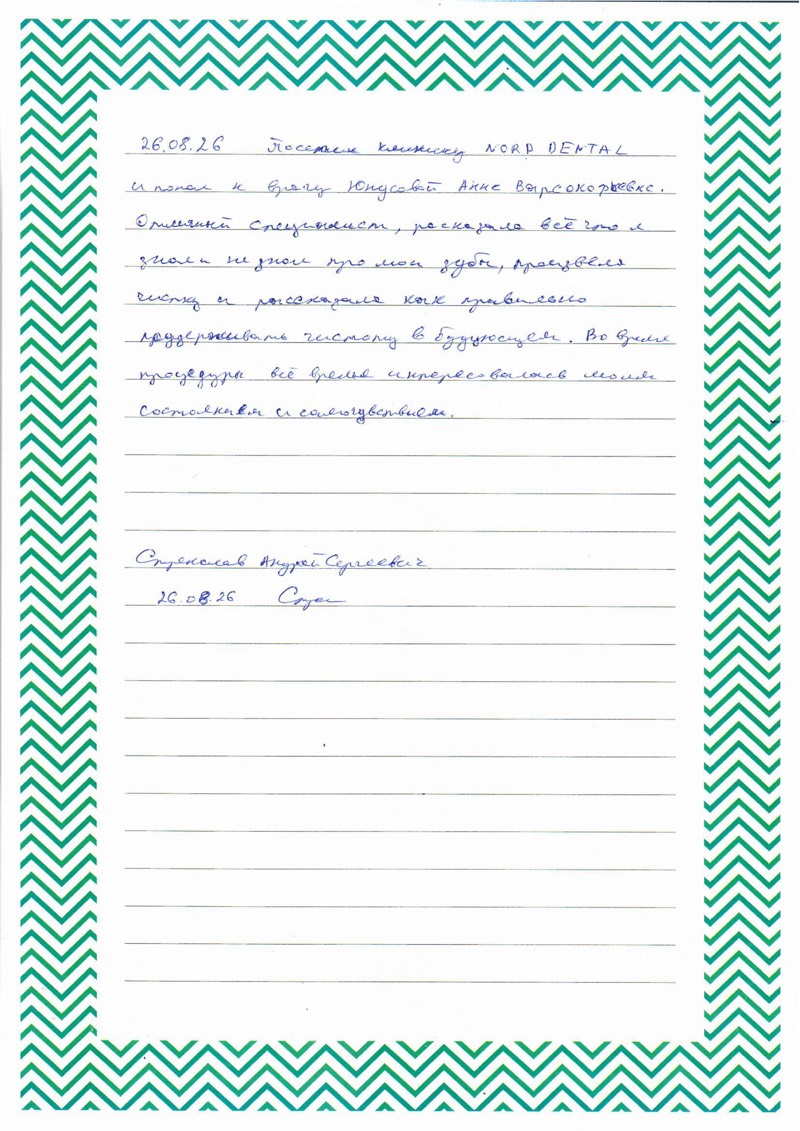 26.08.26 Посетил клинику NORD DENTAL
и попал к врачу Юнусовой Анне
Отличный специалист, рассказала всё что я
знал и не знал про мои зубы, произвела
чистку и рассказала как правильно
поддерживать чистоту в будующем. Во время
процедуры всё время интересовалась моим
состоянием и самочувствием.
Андрей Сергеевич
26.08.26